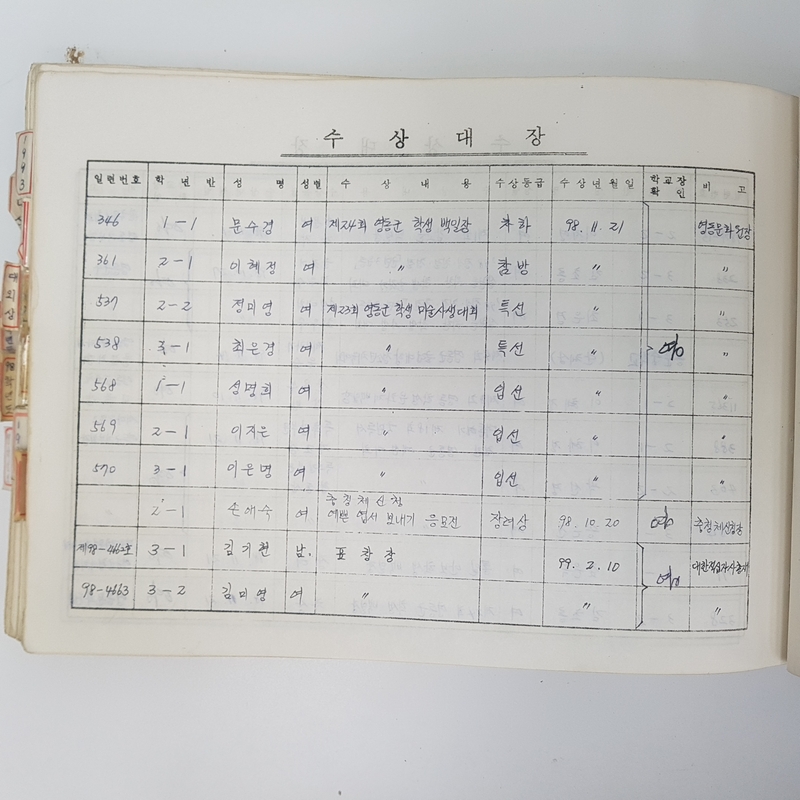 수 상 대 장
일련번호 학 년 반 성 명 성별 수 상 내 용 수상등급 수 상 년 월 일 학교장 확 인 비 고
346 1-1 문수경 여 제24회 영동군 학생 백일장 차하 98. 11. 21 영동문화원장
361 2-1 이혜정 여 〃 참방 〃 〃
537 2-2 정미영 여 제23회 영동군 학생 미술사생대회 특선 〃 〃
538 3-1 최은경 여 〃 특선 〃 〃
568 1-1 성명희 여 〃 입선 〃 〃
569 2-1 이지은 여 〃 입선 〃 〃
570 3-1 이은명 여 〃 입선 〃 〃
충청체신청
2-1 손애숙 여 예쁜 엽서 보내기 응모전 장려상 98. 10. 20 충청체신청장
제98-4662호 3-1 김기현 남. 표창장 99. 2. 10 대한적십자사총재
98-4663 3-2 김미영 여 〃 〃 〃
1993
대외상